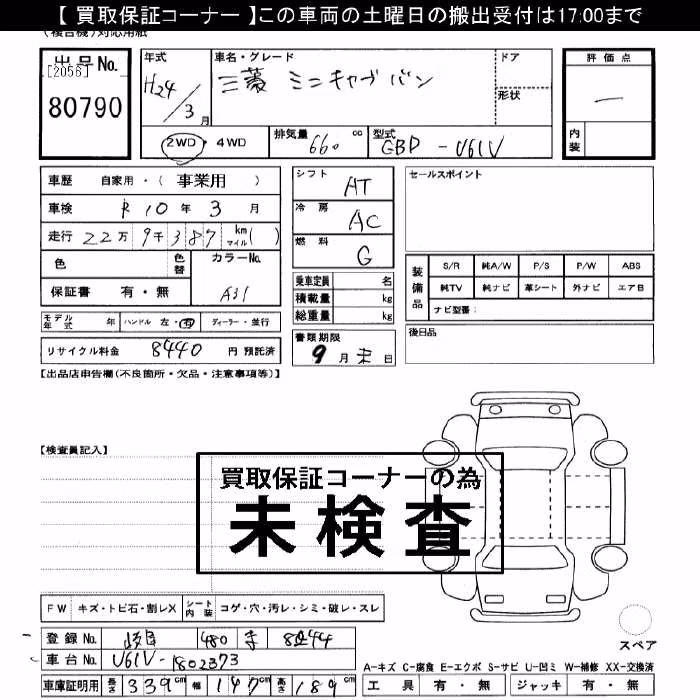 【 買取保証コーナー 】この車両の土曜日の搬出受付は17:00まで
(複合機)対応用紙
出品No. [2056] 80790
年式 H24/3月
車名・グレード 三菱 ミニキャブバン
ドア
形状
評価点 ー
内装
2WD ・ 4WD
排気量 660 cc
型式 GBD-U61V
車歴 自家用 ・( 事業用 )
車検 R10年 3月
走行 22万9千387 km マイル( )
色 色替 カラーNo. A31
保証書 有・無
モデル年式 年 ハンドル 左・右 ディーラー・並行
リサイクル料金 8440 円 預託済
シフト AT
冷房 AC
燃料 G
乗車定員 名
積載量 kg
総重量 kg
書類期限 9月末日
セールスポイント
装備品 S/R 純A/W P/S P/W ABS
純TV 純ナビ 革シート 外ナビ エアB
ナビ型番:
後日品
【出品店申告欄(不良箇所・欠品・注意事項等)】
【検査員記入】
買取保証コーナーの為
未検査
FW キズ・トビ石・割レX シート内装 コゲ・穴・汚レ・シミ・破レ・スレ
登録No. 480 8244
車台No. U61V-1802373
車庫証明用 長さ 339cm 幅 147cm 高さ 189cm
スペア
A-キズ C-腐食 E-エクボ S-サビ U-凹ミ W-補修 XX-交換済
工具 有・無 ジャッキ 有・無